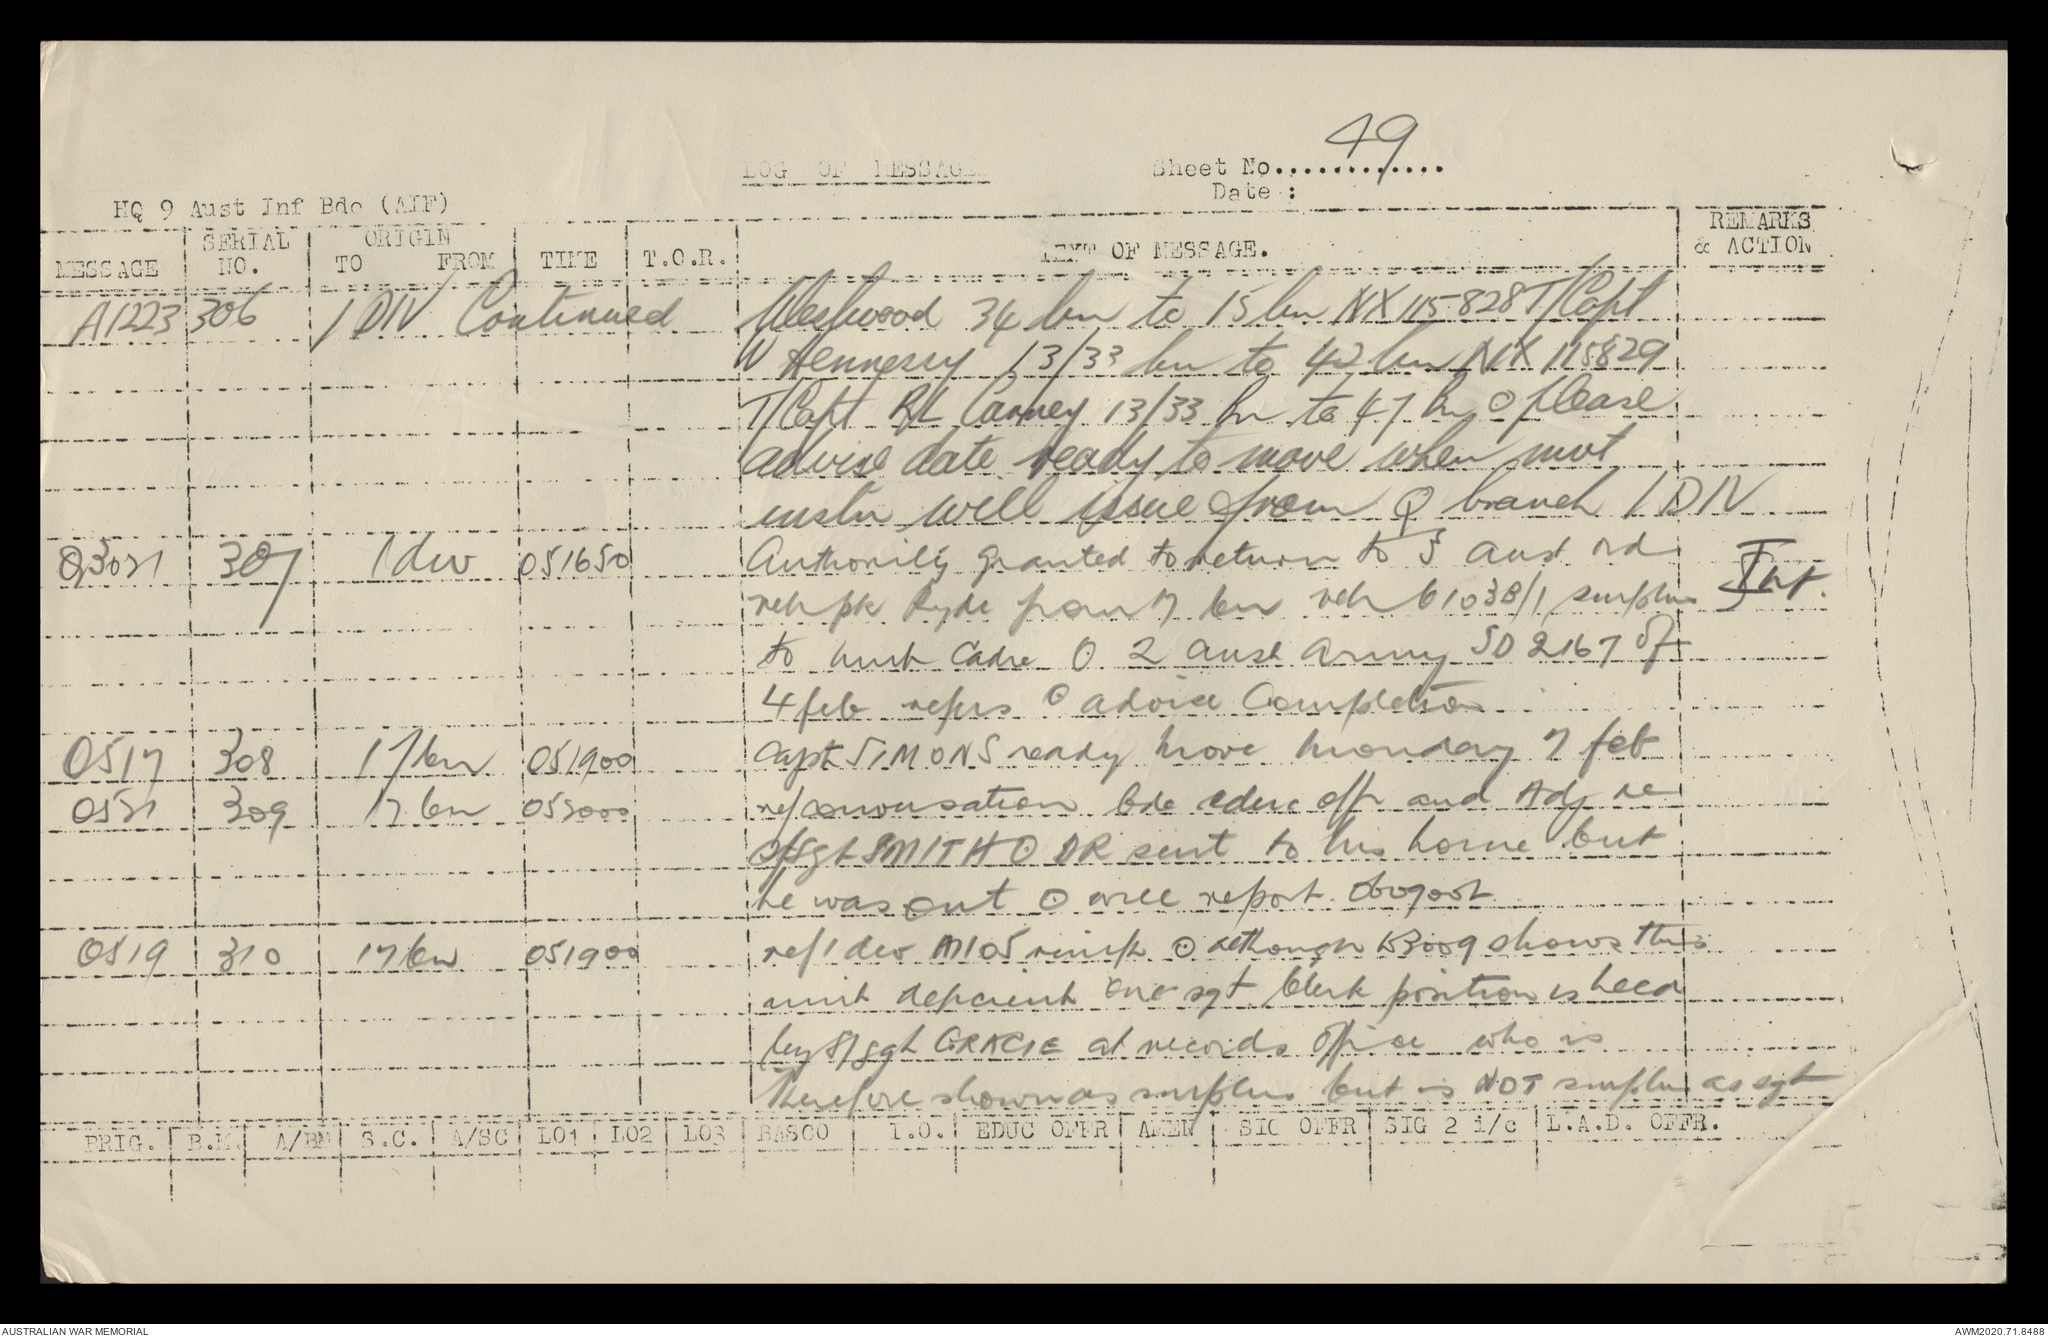 49
LOG OF MESSAGE
Sheet No.............
Date :
HQ 9 Aust Inf Bde (AIF)
MESSAGE SERIAL NO. ORIGIN TO FROM TIME T.O.R. TEXT OF MESSAGE. REMARKS & ACTION
A1223 306 1 DIV Continued Westwood 34 bn to 15 bn NX 115828 T/Capt
W Hennessy 13/33 bn to 42 bn NX 115829
T/Capt RL Carney 13/33 bn to 47 bn ⊙ please
advise date ready to move when mvt
instn will issue from Q branch 1 DIV
307 1 div 051650 Authority granted to return to 3 Aust
from 17 bn veh 61038/1 surplus
to unit Cadre ⊙ 2 Aust Army SD 2167 of
4 feb refers ⊙ advise Completion
0517 308 17 bn 051900 Capt SIMONS ready move monday 7 feb
309 17 bn ref conversation bde educ offr and Adj re
S/Sgt SMITH ⊙ DR sent to his home but
he was out ⊙ will report
0519 310 17 bn 051900 ref 1 div A1105 ⊙ although shows this
unit deficient one sgt Clerk position is held
by S/Sgt GRACIE at records office who is
therefore shown as surplus but is NOT surplus as sgt
BRIG. B.M. A/BM S.C. A/SC LO1 LO2 LO3 BASCO I.O. EDUC OFFR AMEN SIG OFFR SIG 2 i/c L.A.D. OFFR.
AUSTRALIAN WAR MEMORIAL
AWM2020.71.8488